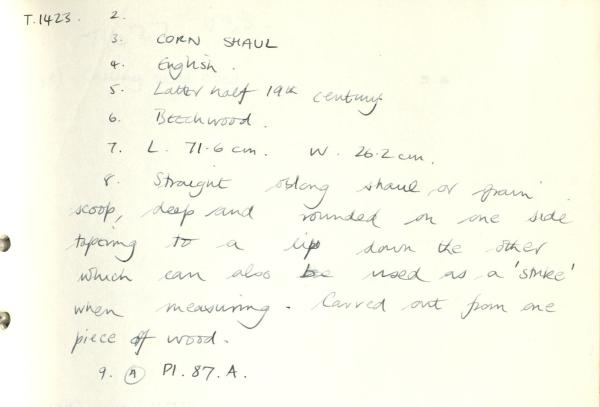 T.1423. 2.
3. CORN SHAUL
4. English.
5. Latter half 19th century.
6. Beechwood.
7. L. 71.6 cm. W. 26.2 cm.
8. Straight oblong shaul or grain
scoop, deep and rounded on one side
tapering to a lip down the other
which can also be used as a 'strike'
when measuring. Carved out from one
piece of wood.
9. (A) Pl. 87. A.